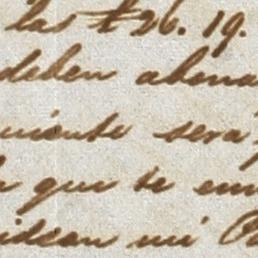 las £26. 19.
deben abona
uiente será
que te em
idean mi